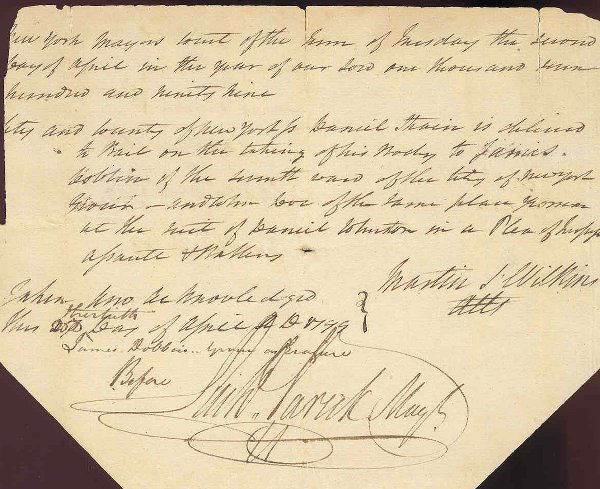 New York Mayors Court of the Term of Tuesday the second
day of April in the year of our Lord one thousand seven
hundred and ninety nine
City and County of New York ss Daniel Strain is delivered
to Bail on the taking of his Body to James
Dobbin of the seventh ward of the City of New York
Grocer and John Doe of the same place yeoman
at the suit of Daniel in a Plea of Trespass
assault & Battery
Martin S Wilkins
Atty
Taken and acknowledged
this day of April AD 1799
James Dobbin
Before
Richd. Varick Mayr.